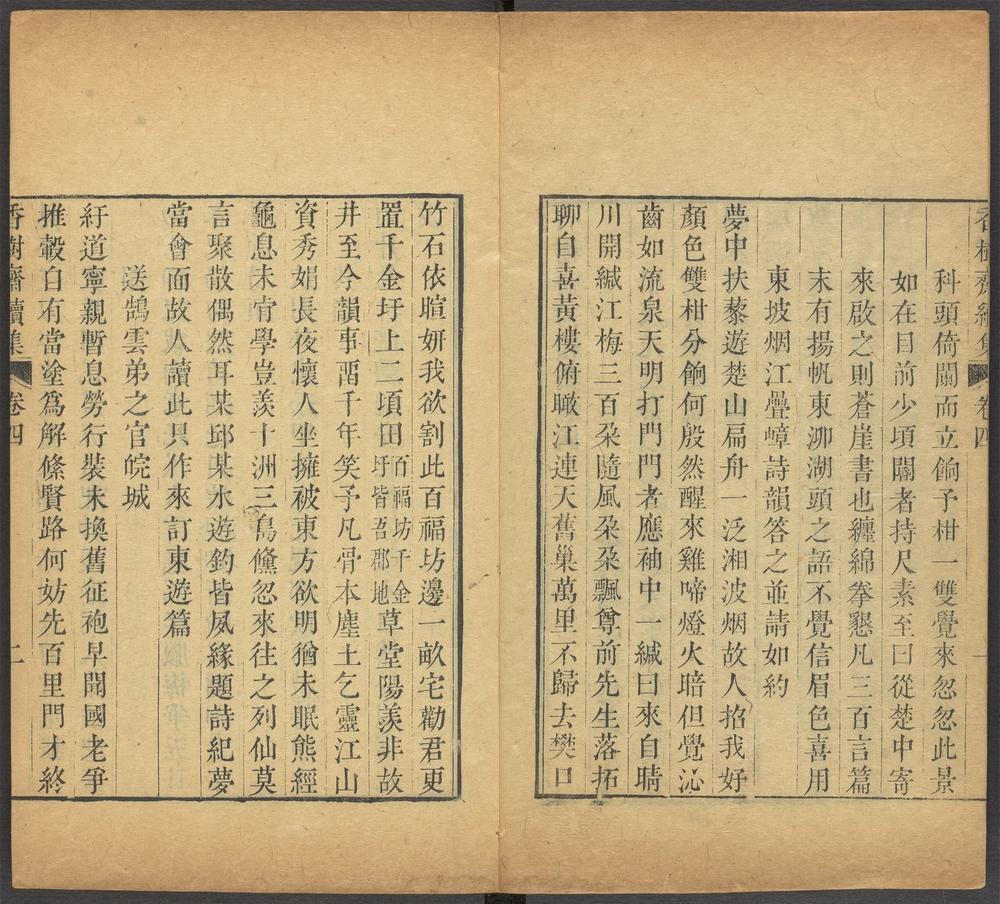 香樹齋續集 卷四 一
科頭倚闌而立餉予柑一雙覺來忽忽此景
如在目前少頃閽者持尺素至曰從楚中寄
來啟之則蒼崖書也纏綿拳懇凡三百言篇
末有揚帆東泖湖頭之語不覺信眉色喜用
東坡烟江疊嶂詩韻答之並請如約
夢中扶藜遊楚山扁舟一泛湘波烟故人招我好
顏色雙柑分餉何殷然醒來雞啼燈火暗但覺沁
齒如流泉天明打門門者應袖中一緘曰來自晴
川開緘江梅三百朶隨風朶朶飄尊前先生落拓
聊自喜黃樓俯瞰江連天舊巢萬里不歸去樊口
竹石依暄妍我欲割此百福坊邊一畝宅勸君更
置千金圩上二頃田百福坊千金圩皆吾郡地草堂陽羨非故
井至今韻事畱千年笑予凡骨本塵土乞靈江山
資秀娟長夜懷人坐擁被東方欲明猶未眠熊經
龜息未肯學豈羨十洲三島儵忽來往之列仙莫
言聚散偶然耳某邱某水遊釣皆夙緣題詩紀夢
當會面故人讀此具作來訂東遊篇
送鵠雲弟之官皖城
紆道寧親暫息勞行裝未換舊征袍早聞國老爭
推轂自有當塗爲解絛賢路何妨先百里門才終
香樹齋續集 卷四 二